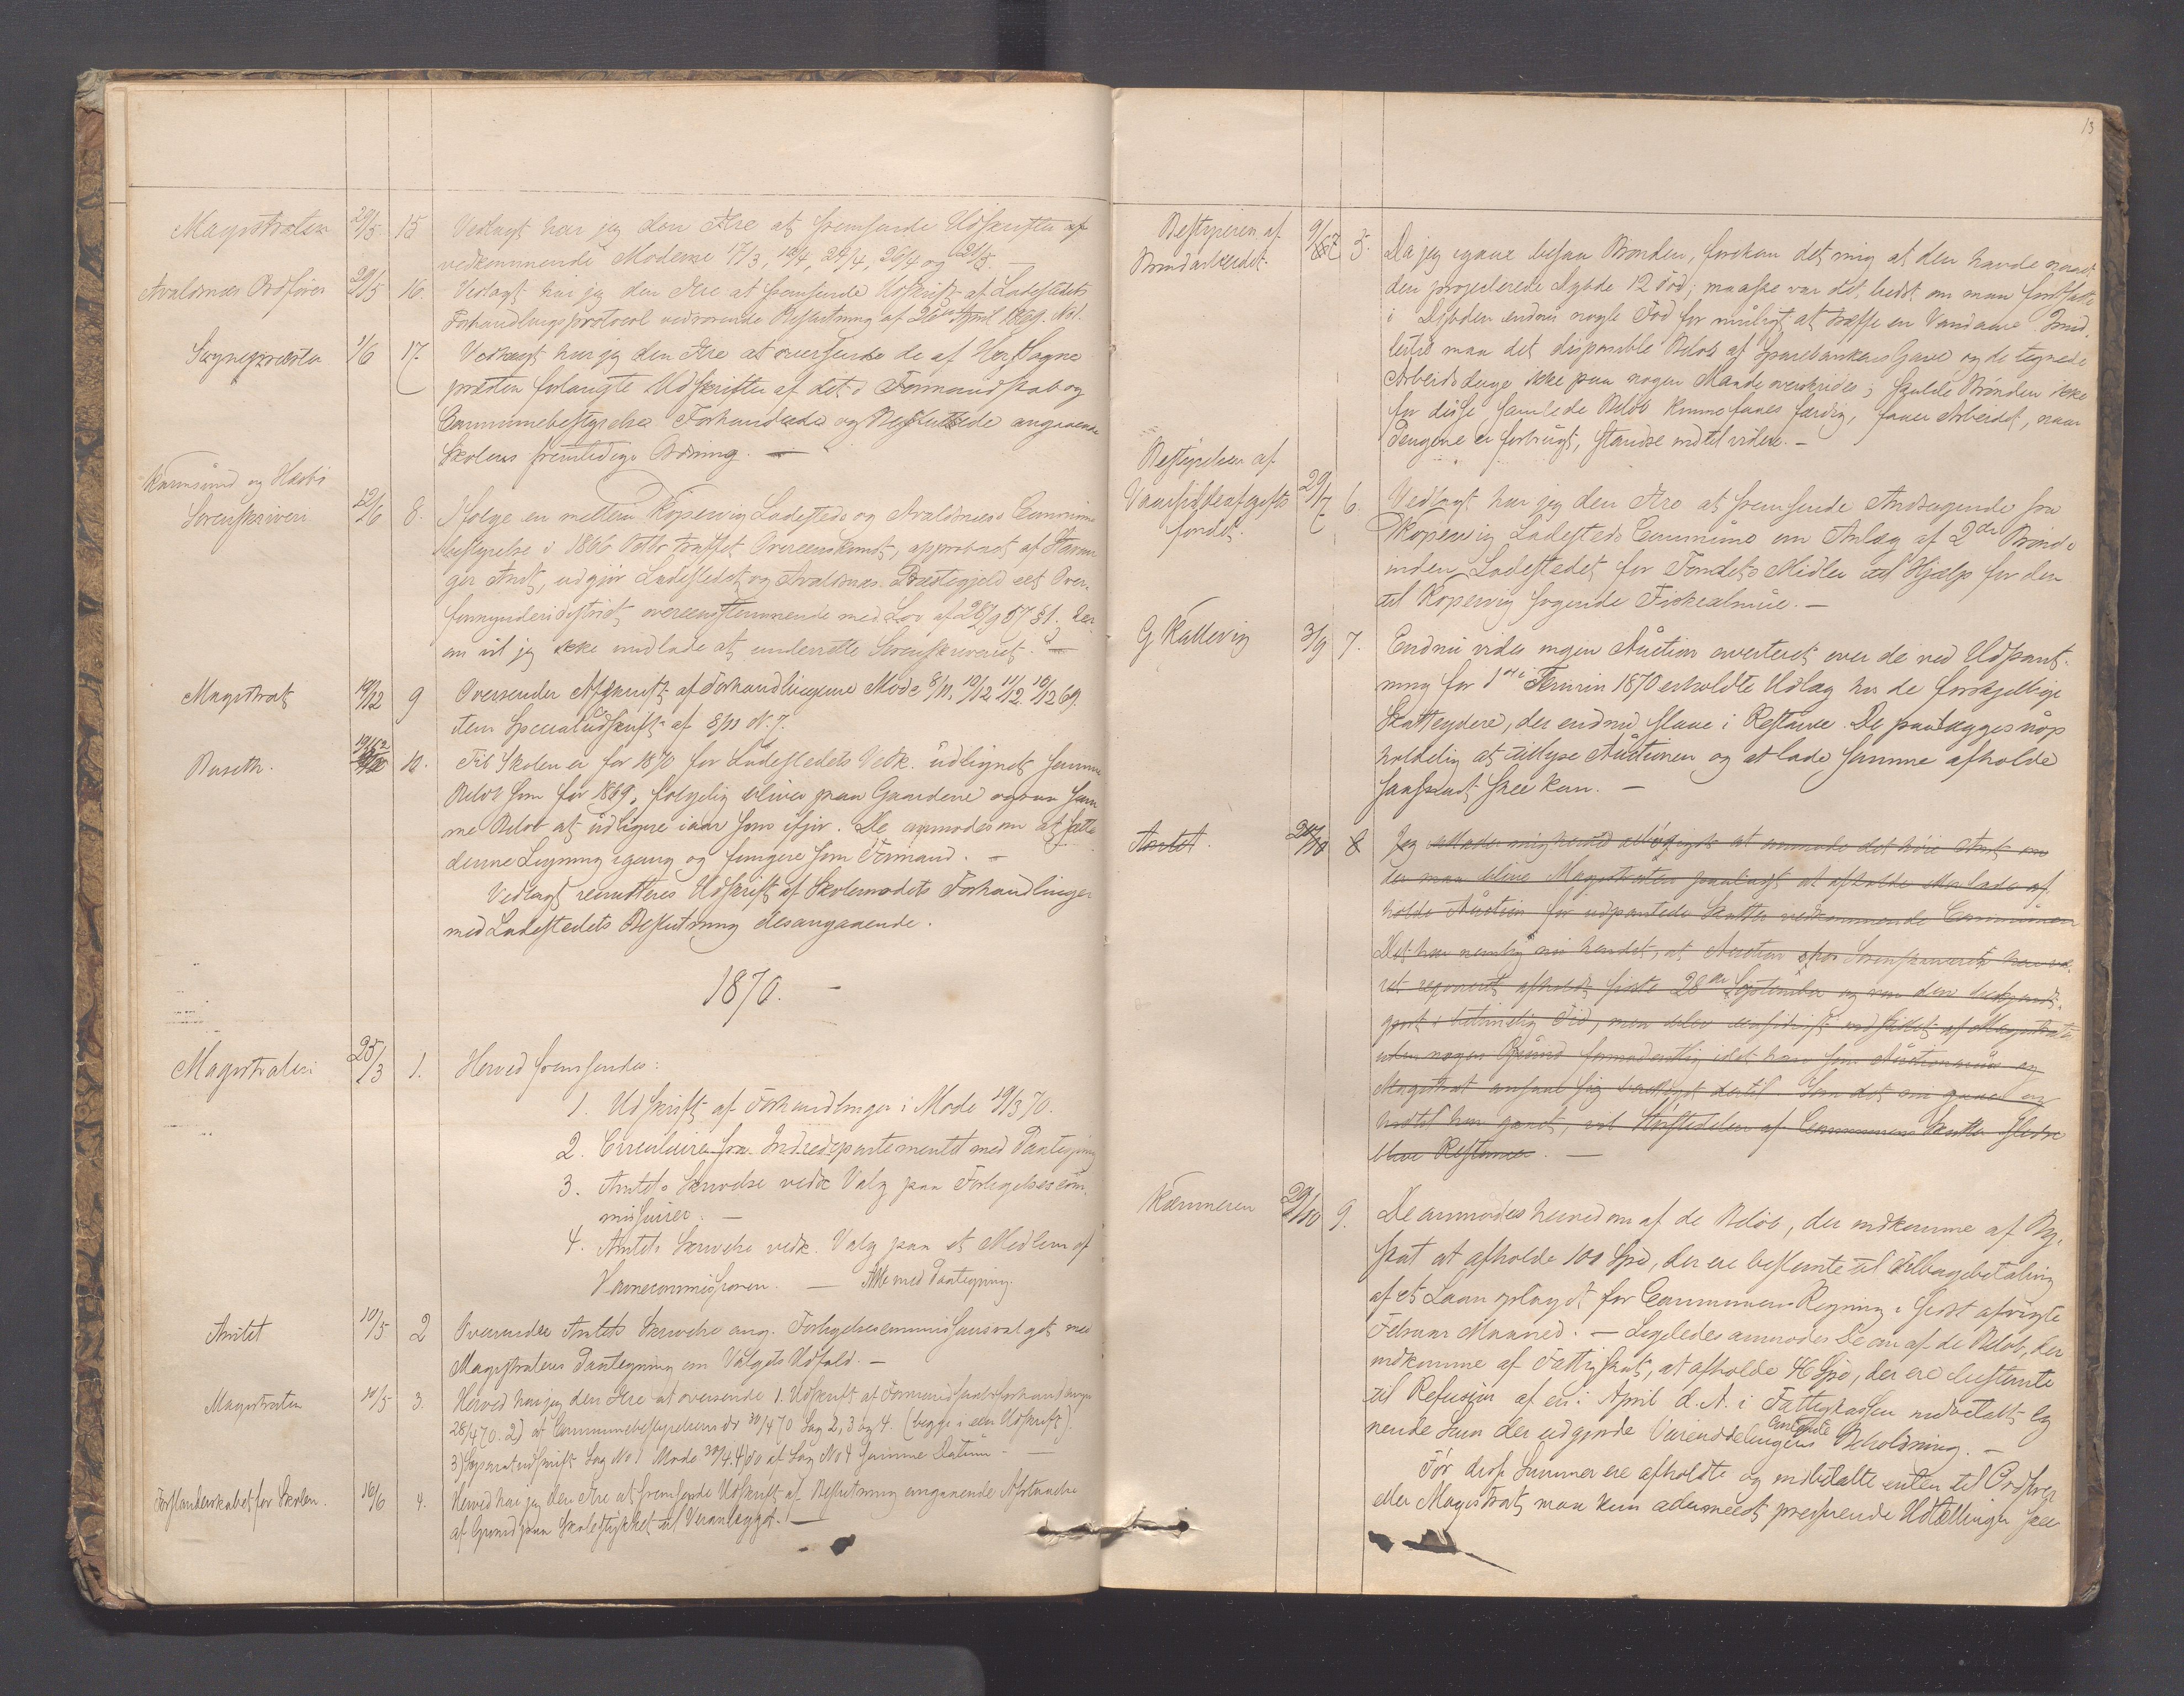 Magistraten 29/5 15 Vedlagt har jeg den Ære at fremsende Udskrifter af
vedkommende Møderne 17/3, 12/4, 24/4, 26/4 og 21/5. —
Avaldsnæs Ordfører 29/5 16. Vedlagt har jeg den Ære at fremsende Udskrift af Ladestedets
Forhandlingsprotocol vedrørende Beslutning af 26de April 1869. No 1.
Sognepræsten 1/6 17. Vedlagt har jeg den Ære at oversende de af Herr Sogne
præsten forlangte Udskrifter af det i Formandskab og
Communebestyrelse Forhandlede og Besluttede angaaende
Skolens fremtidige Ordning. —
Karmsund og Hesbø
Sorenskriveri 12/6 8. Ifølge en mellem Kopervig Ladested og Avaldsnæs Commune
bestyrelse i 1866 Octbr truffet Overeenskomst, approberet af Stavan
ger Amt, udgjør Ladestedet og Avaldsnæs Præstegjeld eet Over-
formynderidistrict overeensstemmende med Lov af 28/9 57 § 1. Der
om vil jeg ikke undlade at underrette Sorenskriveriet. —
Magistrat 19/12 9 Oversender Afskrift af Forhandlingerne Møde 8/11, 10/12 11/12. 16/12 69.
item Specialudskrift af 8/11 No. 7.
10. Til Skolen er for 1870 for Ladestedets Vedk. udlignet samme
Beløb som for 1869, følgelig bliver paa Gaardene ogsaa sam
me Beløb at udligne iaar som ifjor. De anmodes om at sætte
denne Ligning igang og fungere som Formand. —
Vedlagt remitteres Udskrift af Skolemødets Forhandlinger
med Ladestedets Beslutning desangaaende.
1870. —
Magistraten 25/3 1. Herved fremsendes:
1. Udskrift af Forhandlinger i Møde 19/3 70.
2. Circulaire fra Indredepartementet med Paategning
3. Amtets Skrivelse vedk Valg paa Forligelsescom-
missairer. —
4. Amtets Skrivelse vedk. Valg paa et Medlem af
Havnecommissionen. — Alle med Paategning.
Amtet 10/5 2 Oversender Amtets Skrivelse ang. Forligelsescommissairsvalget med
Magistratens Paategning om Valgets Udfald. —
Magistraten 10/5 3. Herved har jeg den Ære at oversende 1. Udskrift af Formandskabsforhandlinger
28/4 70. 2) af Communebestyrelsens do 30/4 70 Sag 2, 3 og 4. (begge i een Udskrift).
3) Separatudskrift Sag No 1 Møde 30/4. 4) do af Sag No 4 samme Datum. —
Forstanderskabet for Skolen. 16/6 4. Herved har jeg den Ære at fremsende Udskrift af Beslutning angaaende Afstaaelse
af Grund paa Skolestykket til Veianlægget. —
13
Bestyreren af
Brøndarbeidet. 5. Da jeg igaar besaa Brønden, forekom det mig at den havde naaet
den projecterede Dybde 12 Fod; maaske var det bedst om man fortsatte
i Dybden endnu nogle Fod for muligt at træffe en Vandaare. Imid
lertid maa det disponible Beløb af Sparebankens Gave og de tegnede
Arbeidsdage ikke paa nogen Maade overskrides; skulde Brønden ikke
for disse samlede Beløb kunne faaes færdig, faaer Arbeidet, naar
Pengene er forbrugt, standse indtil videre. —
Bestyrelsen af
Vaarsildeafgifts
fondet. 29/7 6. Vedlagt har jeg den Ære at fremsende Andragende fra
Kopervig Ladesteds Commune om Anlæg af 2de Brønde
inden Ladestedet for Fondets Midler til Hjælp for den
til Kopervig søgende Fiskealmue. —
G Kallevig 3/9 7. Endnu vides ingen Auction averteret over de ved Udpant-
ning for 1ste Termin 1870 erholdte Udlæg hos de forskjellige
Skatteydere, der endnu staae i Restance. De paalægges uop
holdelig at tillyse Auctionen og at lade samme afholde
saasnart skee kan. —
Amtet. 8 Jeg tillader mig herved at anmode det høie Amt om
der maa blive Magistraten paalagt at afholde eller lade af
holde Auction for udpantede Skatter vedkommende Communen
Det har nemlig nu hendet, at Auction hos Sorenskriveren har væ-
ret afholdt sidste 28de September og var den bekjendt-
gjort i betimelig Tid, men blev af Magistraten
uden nogen Grund formodentlig idet han som Auctionarius og
Magistrat ansaae sig berettiget dertil. Som det nu gaaer og
hidtil har gaaet, vil Størstedelen af Communens Skatter stedse
blive Restancer. —
Kæmneren 29/10 9. De anmodes herved om af de Beløb, der indkomme af By-
skat at afholde 100 Spd, der ere bestemte til Tilbagebetaling
af et Laan optaget for Communens Regning i sidst afvigte
Februar Maaned. — Ligeledes anmodes De om af de Beløb, der
indkomme af Fattigskat, at afholde 46 Spd, der ere bestemte
til Refusion af en i April d. A. i Fattigkassen indbetalt lig
nende Sum der udgjorde Beholdning. —
Før disse Summer ere afholdte og indbetalte enten til Ordfører
eller Magistrat maa kun presserende Udtællinger skee